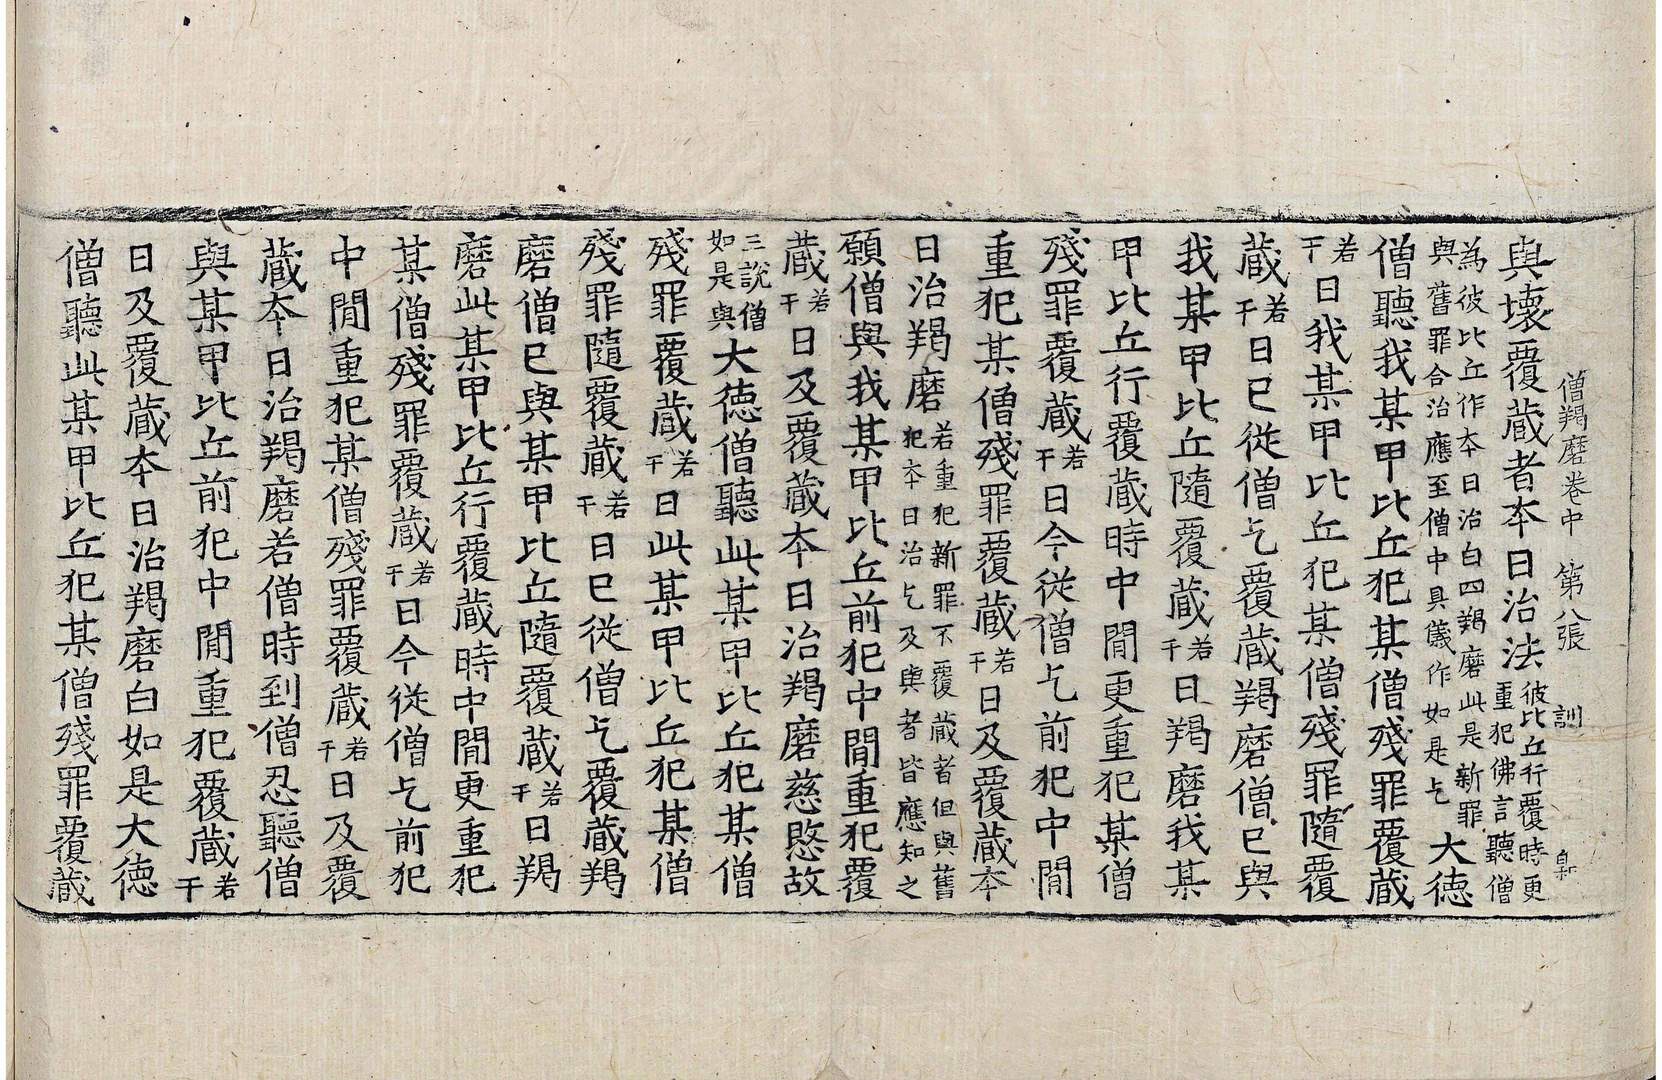 僧羯磨卷中 第八張 訓
與壞覆蔵者夲日治法彼比丘行覆時更重犯佛言聽僧
為彼比丘作夲日治白四羯磨此是新罪與舊罪合治應至僧中具儀作如是乞大德
僧聽我某甲比丘犯某僧殘罪覆蔵
若干日我某甲比丘犯某僧殘罪隨覆
蔵若干日已從僧乞覆蔵羯磨僧已與
我某甲比丘隨覆蔵若干日羯磨我某
甲比丘行覆蔵時中閒更重犯某僧
殘罪覆蔵若干日今從僧乞前犯中閒
重犯某僧殘罪覆蔵若干日及覆蔵夲
日治羯磨若重犯新罪不覆蔵者但與舊犯夲日治乞及與者皆應知之
願僧與我某甲比丘前犯中閒重犯覆
蔵若干日及覆蔵夲日治羯磨慈愍故
三說僧如是與大德僧聽此某甲比丘犯某僧
殘罪覆蔵若干日此某甲比丘犯某僧
殘罪隨覆蔵若干日已從僧乞覆蔵羯
磨僧已與某甲比丘隨覆蔵若干日羯
磨此某甲比丘行覆蔵時中閒更重犯
某僧殘罪覆蔵若干日今從僧乞前犯
中閒重犯某僧殘罪覆蔵若干日及覆
蔵夲日治羯磨若僧時到僧忍聽僧
與某甲比丘前犯中閒重犯覆蔵若干
日及覆蔵夲日治羯磨白如是大德
僧聽此某甲比丘犯某僧殘罪覆蔵